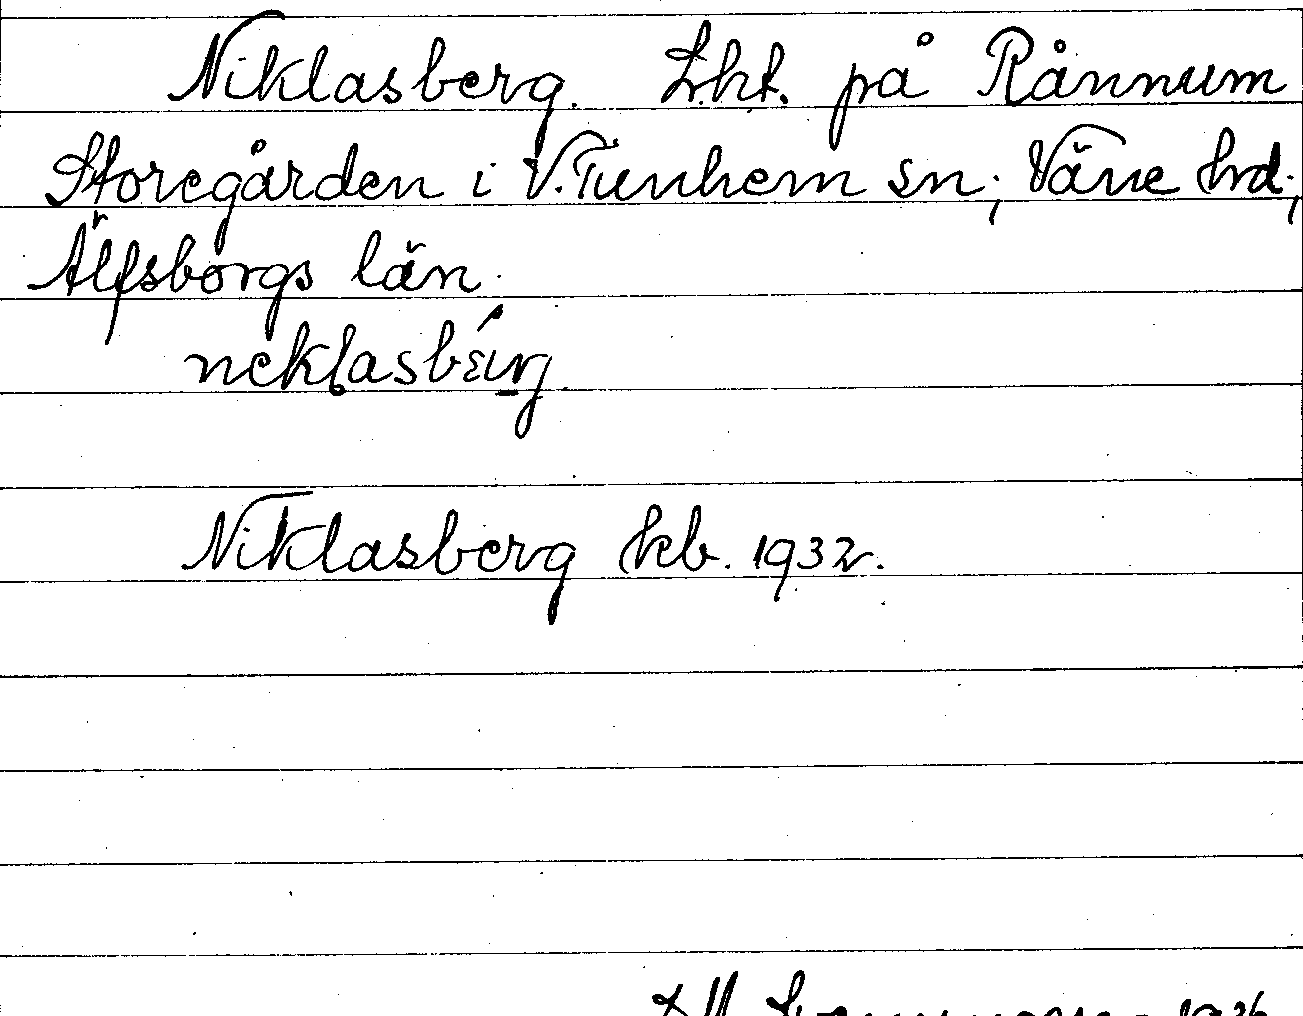 Niklasberg. Lht. på Rånnum
Storegården i V. Tunhem sn; Väne hrd.,
Älfsborgs län.
Niklasberg hb. 1932.